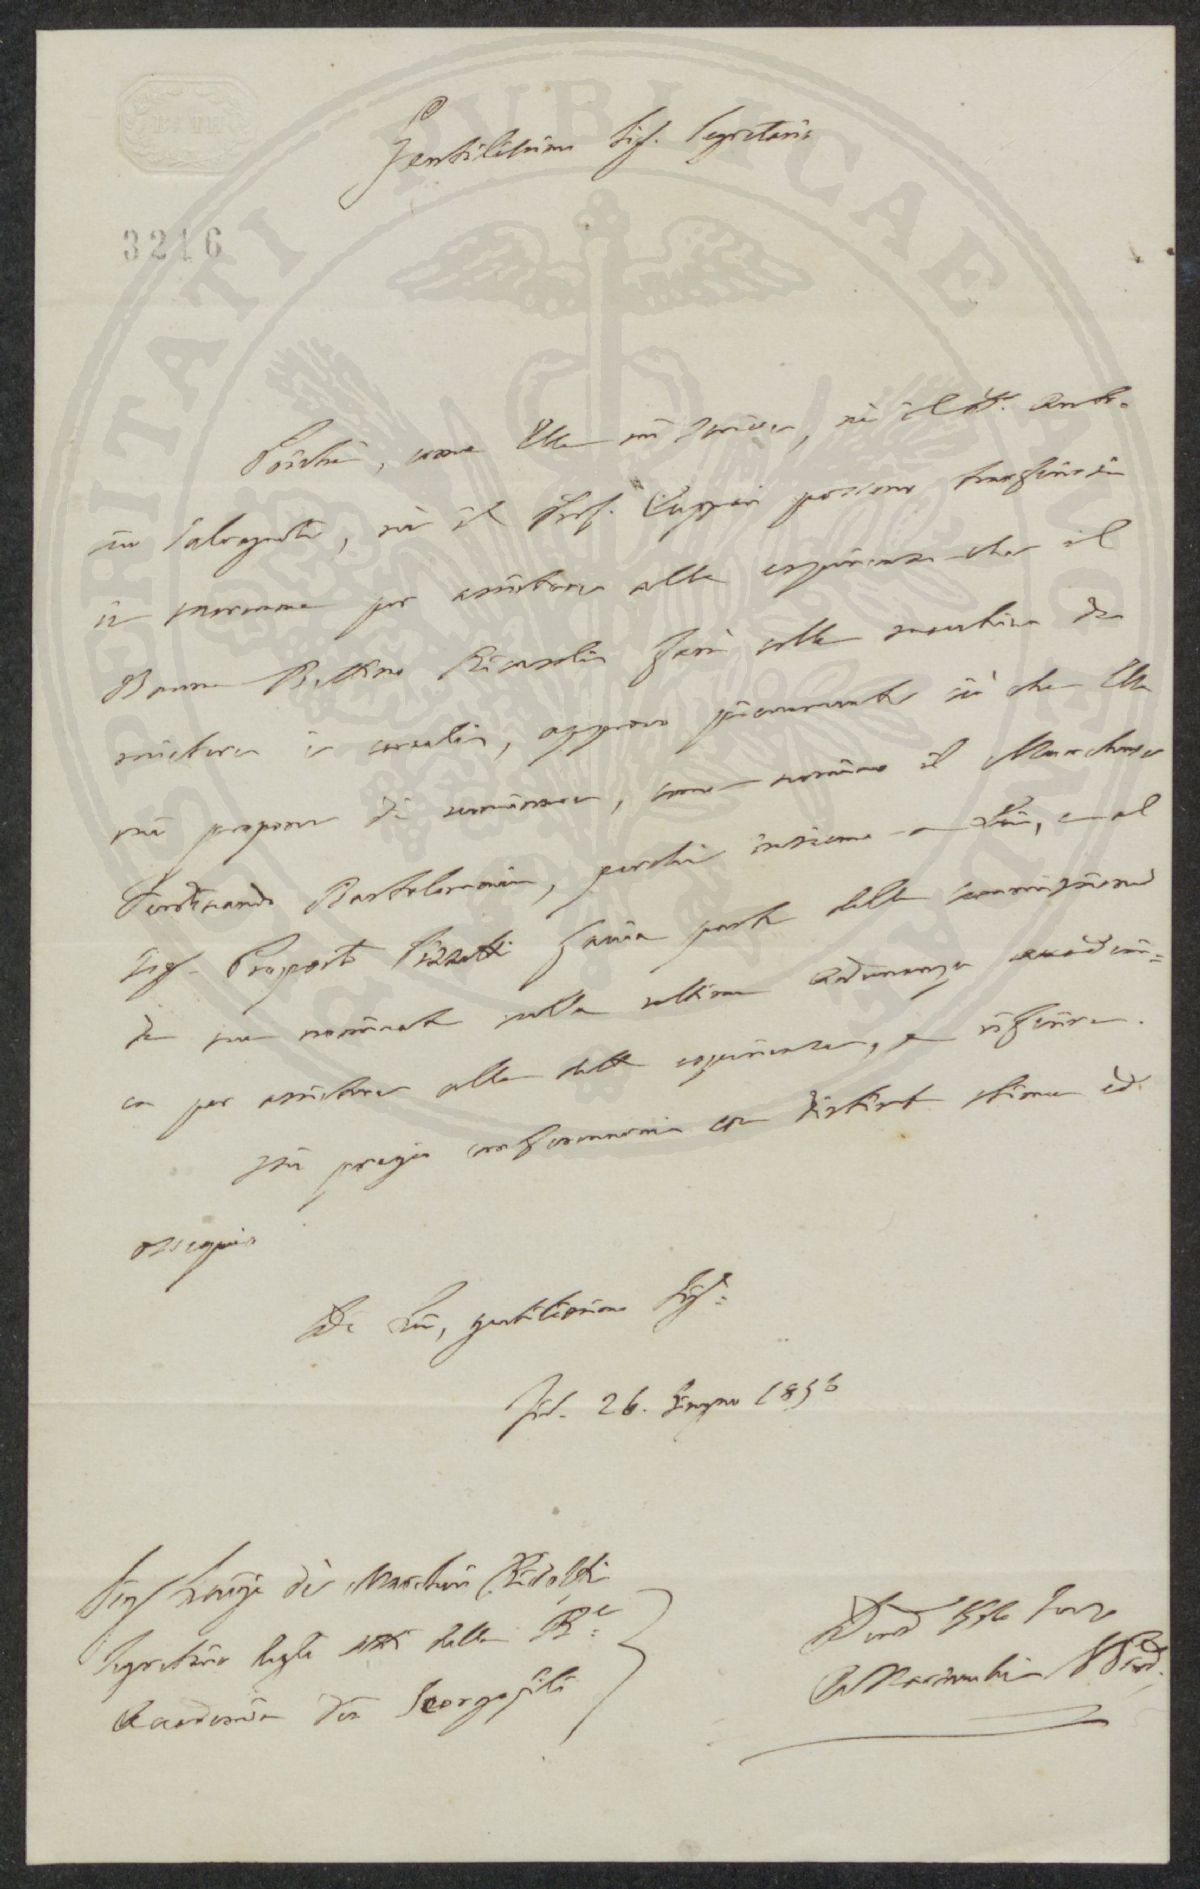 BATH
Gentilissimo Sig. Segretario
3216
PROSPERITATI PUBLICAE AUGENDAE
Poichè, come Ella mi scrive, nè il Dt. Anto-
nio Salvagnoli, nè il Prof. Cuppari possono trasferirsi
in maremma per assistere alle esperienze che il
Barone Bettino Ricasoli farà colla macchina da
mietere i cereali, approvo pienamente ciò che Ella
mi propone di nominare, come nomino il Marchese
Ferdinando Bartolommei, perchè insieme a Lei, e al
Sig. Proposto Pizzetti faccia parte della commissione
da me nominata nella ultima Adunanza accademi=
ca per assistere alle dette esperienze, e riferire.
Mi pregio confermarmi con distinta stima ed
ossequio
Di Lei, gentilissimo Sig=
Fir. 26. Giugno 1856
Sig Luigi de' Marchesi Ridolfi
Segretario degli atti della R.e
Accademia dei Georgofili